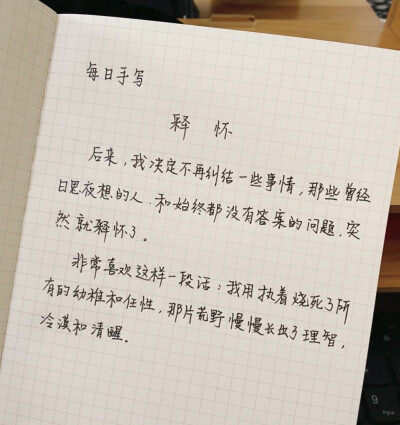 每日手写
释 怀
后来，我决定不再纠结一些事情，那些曾经
日思夜想的人.和始终都没有答案的问题,突
然就释怀了。
非常喜欢这样一段话：我用执着烧死了所
有的幼稚和任性，那片荒野慢慢长出了理智，
冷漠和清醒。
9